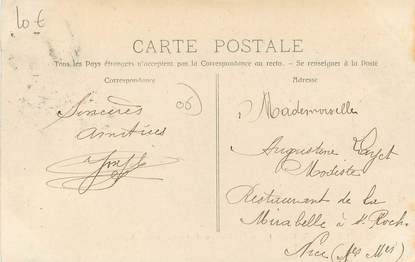 10 €
CARTE POSTALE
Tous les Pays étrangers n'acceptent pas la Correspondance au recto. - Se renseigner à la Poste
Correspondance
Adresse
06
Sincères
amitiés
Mademoiselle
Augustine
Modiste
Restaurant de la
Mirabelle à St Roch
Nice (Alpes Mmes)